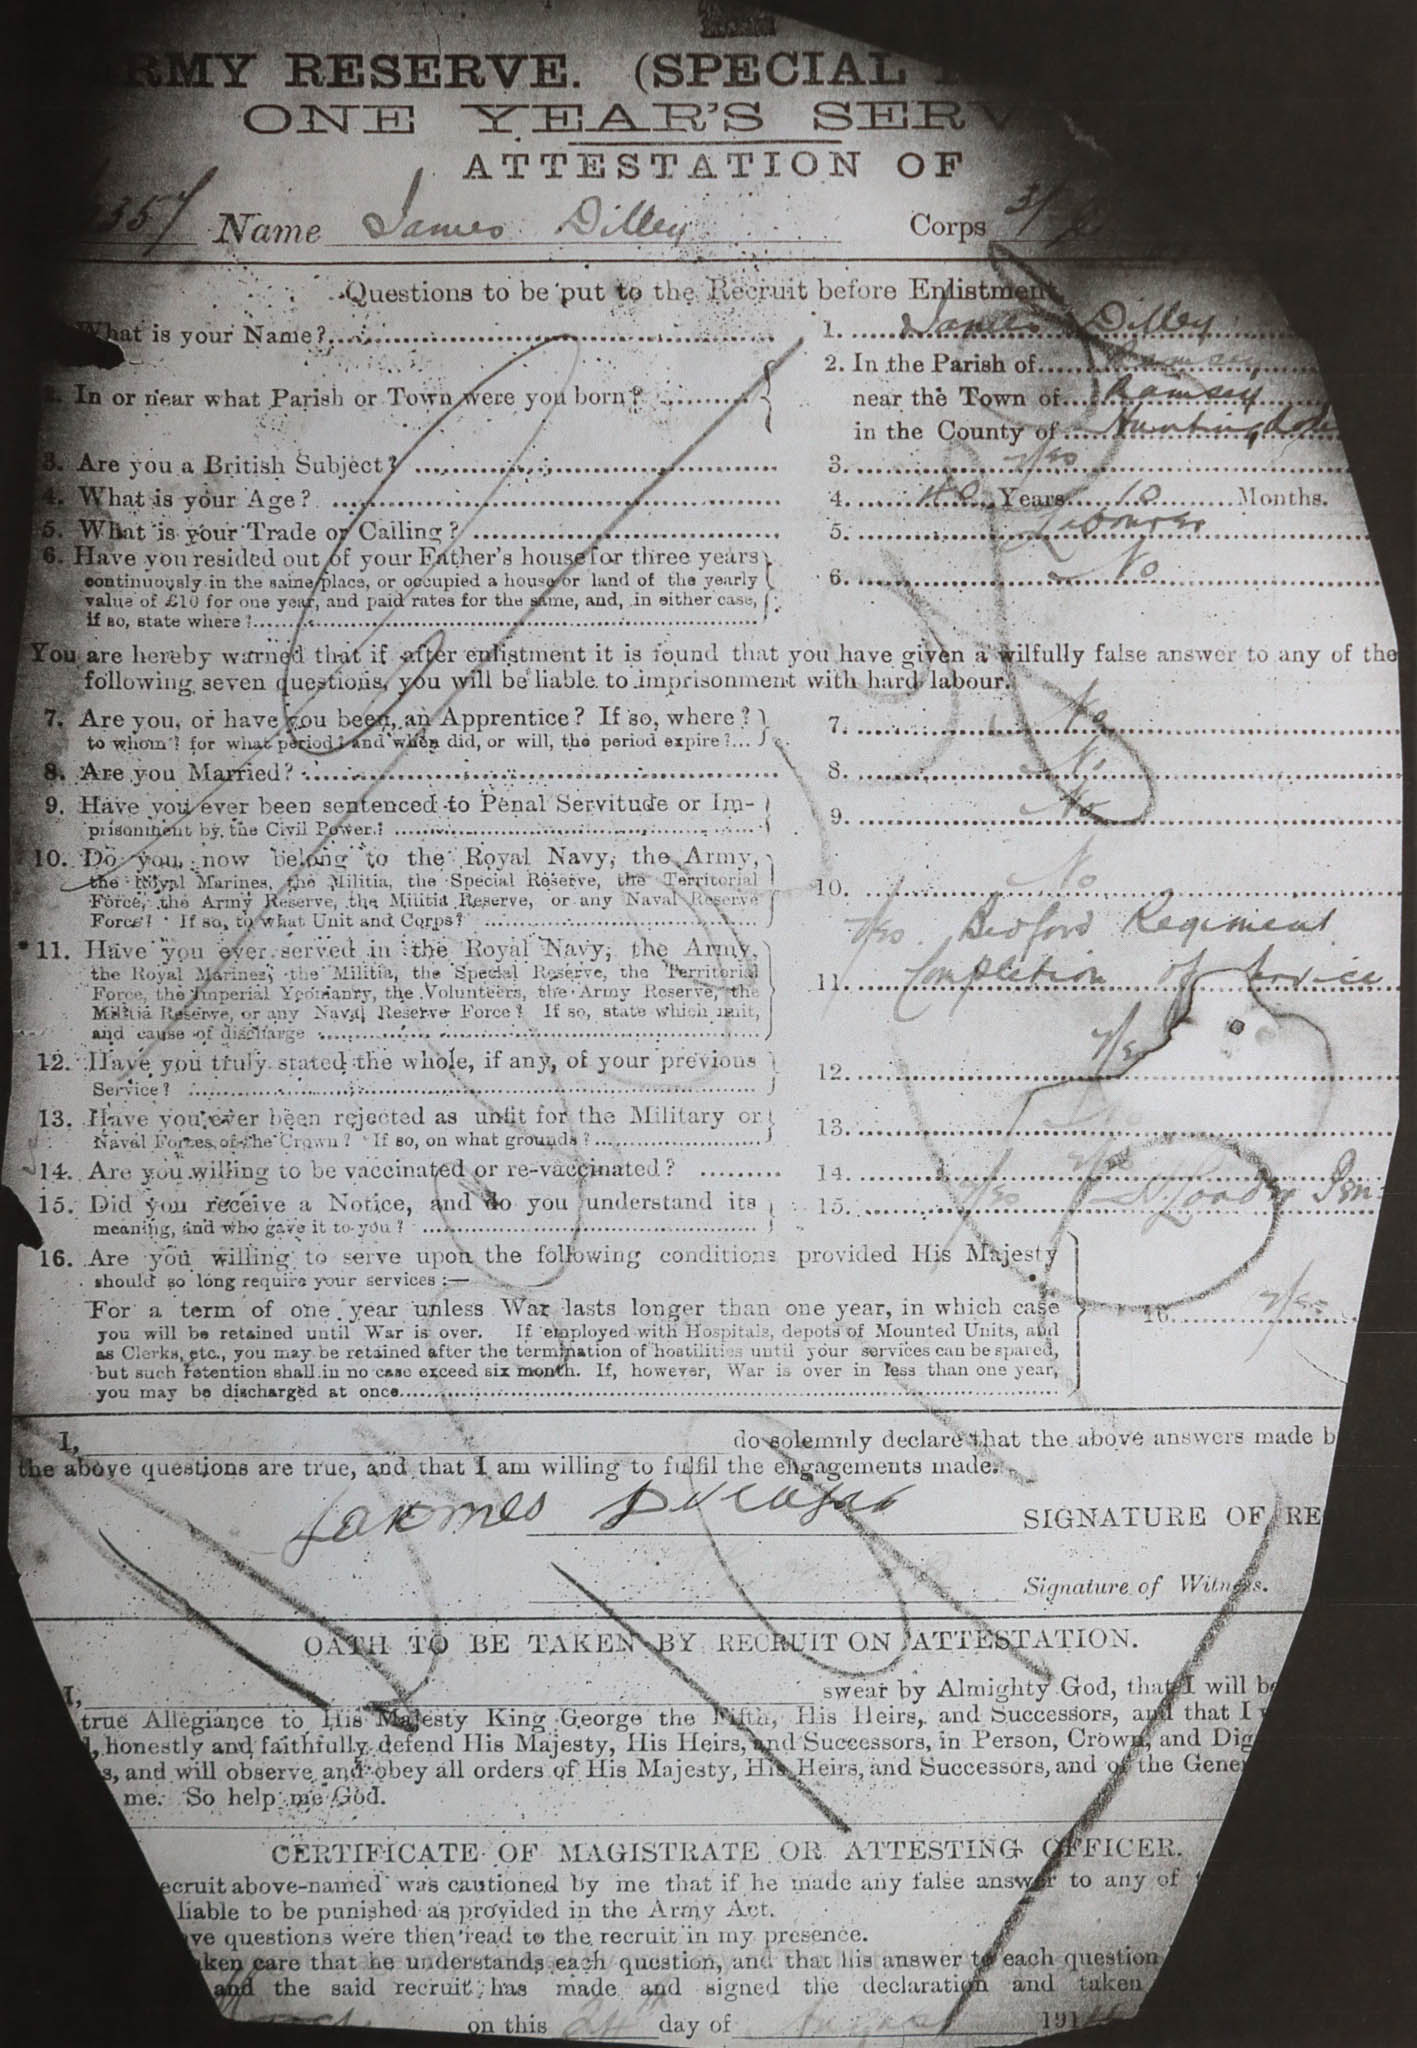 ARMY RESERVE. (SPECIAL
ONE YEAR'S SERV
ATTESTATION OF
357 Name James Dilley Corps 3/
Questions to be put to the Recruit before Enlistment
What is your Name? 1. James Dilley
2. In or near what Parish or Town were you born? 2. In the Parish of Ramsey
near the Town of Ramsey
in the County of Huntingdon
3. Are you a British Subject? 3. Yes
4. What is your Age? 4. 40 Years 10 Months.
5. What is your Trade or Calling? 5. Labourer
6. Have you resided out of your Father's house for three years
continuously in the same place, or occupied a house or land of the yearly 6. No
value of £10 for one year, and paid rates for the same, and, in either case,
if so, state where?
You are hereby warned that if after enlistment it is found that you have given a wilfully false answer to any of the
following seven questions, you will be liable to imprisonment with hard labour.
7. Are you, or have you been, an Apprentice? If so, where? 7. No
to whom? for what period? and when did, or will, the period expire?...
8. Are you Married? 8. No
9. Have you ever been sentenced to Penal Servitude or Im- 9. No
prisonment by the Civil Power?
10. Do you now belong to the Royal Navy, the Army,
the Royal Marines, the Militia, the Special Reserve, the Territorial 10. No
Force, the Army Reserve, the Militia Reserve, or any Naval Reserve
Force? If so, to what Unit and Corps?
11. Have you ever served in the Royal Navy, the Army, Yes. Bedford Regiment
the Royal Marines, the Militia, the Special Reserve, the Territorial 11. Completion of Service
Force, the Imperial Yeomanry, the Volunteers, the Army Reserve, the
Militia Reserve, or any Naval Reserve Force? If so, state which unit,
and cause of discharge
12. Have you truly stated the whole, if any, of your previous 12. Yes
Service?
13. Have you ever been rejected as unfit for the Military or 13.
Naval Forces of the Crown? If so, on what grounds?
14. Are you willing to be vaccinated or re-vaccinated? 14. Yes
15. Did you receive a Notice, and do you understand its 15. Yes
meaning, and who gave it to you?
16. Are you willing to serve upon the following conditions provided His Majesty
should so long require your services:—
For a term of one year unless War lasts longer than one year, in which case 16. Yes
you will be retained until War is over. If employed with Hospitals, depots of Mounted Units, and
as Clerks, etc., you may be retained after the termination of hostilities until your services can be spared,
but such retention shall in no case exceed six month. If, however, War is over in less than one year,
you may be discharged at once
I, do solemnly declare that the above answers made b
the above questions are true, and that I am willing to fulfil the engagements made.
SIGNATURE OF RE
Signature of Witness.
OATH TO BE TAKEN BY RECRUIT ON ATTESTATION.
I, swear by Almighty God, that I will be
true Allegiance to His Majesty King George the Fifth, His Heirs, and Successors, and that I
honestly and faithfully defend His Majesty, His Heirs, and Successors, in Person, Crown, and Dig
s, and will observe and obey all orders of His Majesty, His Heirs, and Successors, and of the Gene
me. So help me God.
CERTIFICATE OF MAGISTRATE OR ATTESTING OFFICER.
ecruit above-named was cautioned by me that if he made any false answer to any of
liable to be punished as provided in the Army Act.
ve questions were then read to the recruit in my presence.
aken care that he understands each question, and that his answer to each question
and the said recruit has made and signed the declaration and taken
on this 24th day of August 191